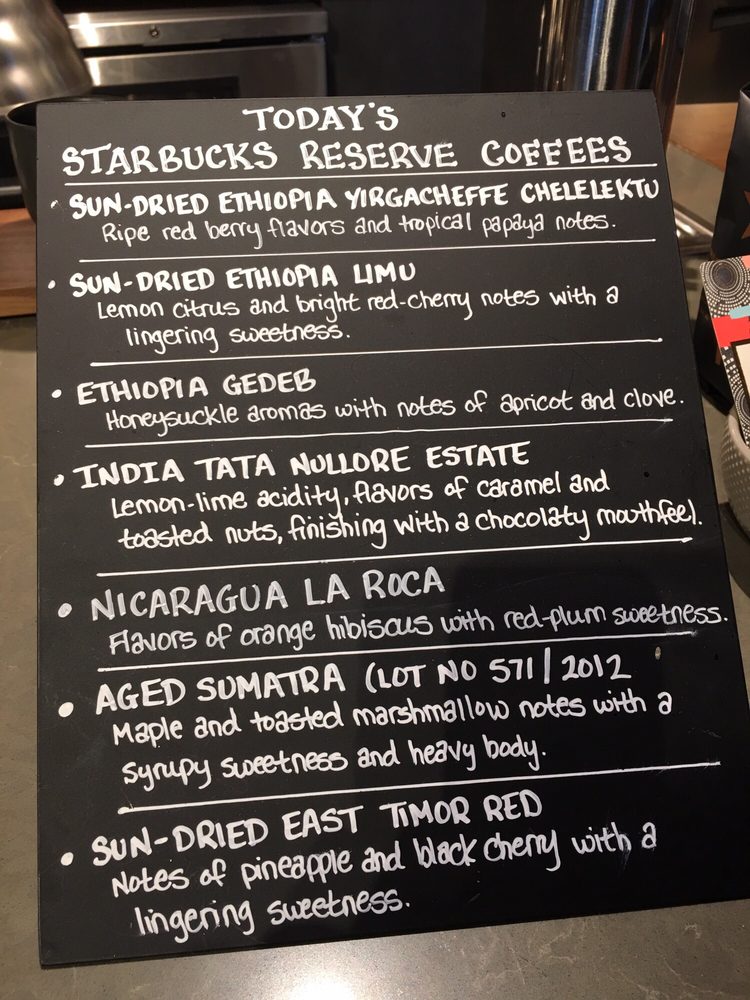 TODAY'S
STARBUCKS RESERVE COFFEES
• SUN-DRIED ETHIOPIA YIRGACHEFFE CHELELEKTU
Ripe red berry flavors and tropical papaya notes.
• SUN-DRIED ETHIOPIA LIMU
Lemon citrus and bright red-cherry notes with a
lingering sweetness.
• ETHIOPIA GEDEB
Honeysuckle aromas with notes of apricot and clove.
• INDIA TATA NULLORE ESTATE
Lemon-lime acidity, flavors of caramel and
toasted nuts, finishing with a chocolaty mouthfeel.
• NICARAGUA LA ROCA
Flavors of orange hibiscus with red-plum sweetness.
• AGED SUMATRA (LOT NO 571/2012
Maple and toasted marshmallow notes with a
syrupy sweetness and heavy body.
• SUN-DRIED EAST TIMOR RED
Notes of pineapple and black cherry with a
lingering sweetness.